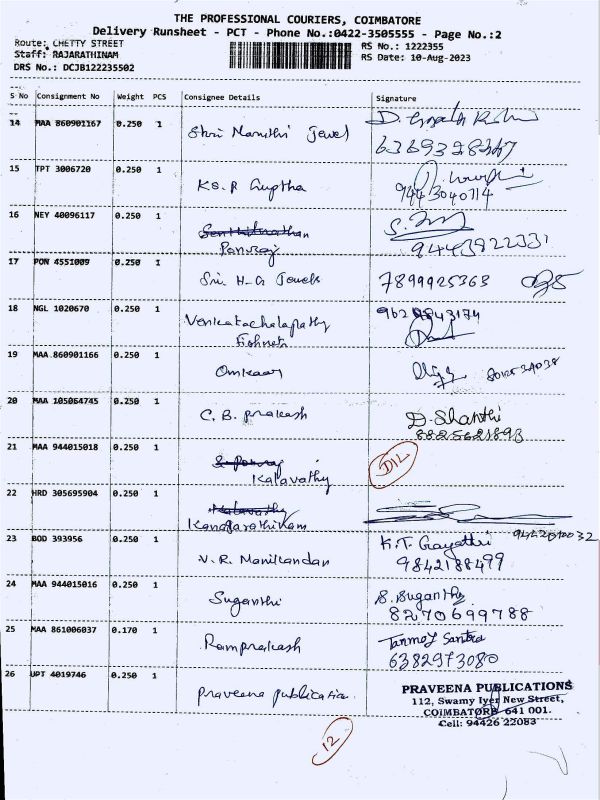 THE PROFESSIONAL COURIERS, COIMBATORE
Delivery Runsheet - PCT - Phone No.:0422-3505555 - Page No.:2
Route: CHETTY STREET
RS No.: 1222355
Staff: RAJARATHINAM
RS Date: 10-Aug-2023
DRS No.: DCJB122235502
S No Consignment No Weight PCS Consignee Details Signature
14 MAA 860901167 0.250 1 Shri Maruthi Jewel D.
15 TPT 3006720 0.250 1 KS.R Guptha
9443040714
16 NEY 40096117 0.250 1 Senthilnathan
Ponraj
17 PON 4551009 0.250 1 Sri H-G Jewels 7899925363
18 NGL 1020670 0.250 1 Venkatachalapathy
19 MAA 860901166 0.250 1 Omkaar
20 MAA 105064745 0.250 1 C. B. Prakash D. Shanthi
21 MAA 944015018 0.250 1 S. Ponraj
Kalavathy
22 HRD 305695904 0.250 1 Kalavathy
Kanagarathinam
23 BOD 393956 0.250 1 V. R. Manikandan K.T. Gayathri
9842188499
24 MAA 944015016 0.250 1 Suganthi S. Suganthi
8270699788
25 MAA 861006037 0.170 1 Ramprakash Tanmoy Santra
6382973080
26 UPT 4019746 0.250 1 Praveena publication
PRAVEENA PUBLICATIONS
112, Swamy Iyer New Street,
COIMBATORE- 641 001.
Cell: 94426 22083
12